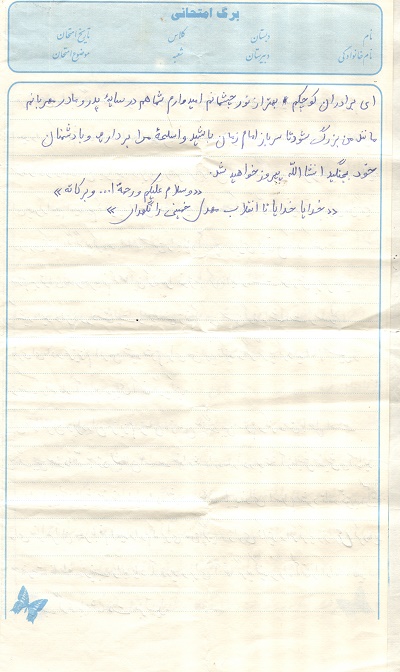 برگ امتحانی
نام دبستان کلاس تاریخ امتحان
نام خانوادگی دبیرستان شعبه موضوع امتحان
ای برادران کوچکم بهتر از نور چشمانم امیدوارم شما هم در سایه پدر و مادر مهربانم
مانند من بزرگ شوید تا سرباز امام زمان باشید و اسلحهٔ مرا بردارید و با دشمنان
خود بجنگید انشاالله پیروز خواهید شد.
«و سلام علیکم و رحمة ا... و برکاته»
«خدایا خدایا تا انقلاب مهدی خمینی را نگهدار»